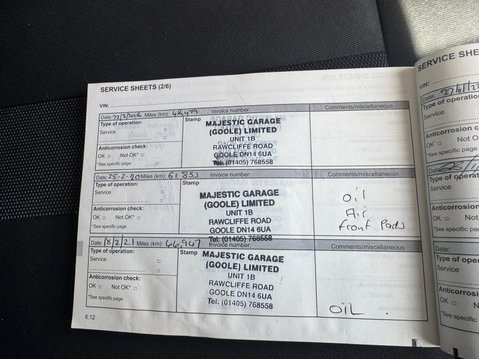 SERVICE SHEETS (2/6)
VIN:
Date: Miles (km): Invoice number: Comments/miscellaneous
Type of operation: Stamp
Service
MAJESTIC GARAGE
(GOOLE) LIMITED
UNIT 1B
RAWCLIFFE ROAD
GOOLE DN14 6UA
Tel: (01405) 768558
Anticorrosion check:
OK Not OK*
*See specific page
Date: 25-2-20 Miles (km): 61 833 Invoice number: Comments/miscellaneous
Type of operation: Stamp
Service
MAJESTIC GARAGE
(GOOLE) LIMITED
UNIT 1B
RAWCLIFFE ROAD
GOOLE DN14 6UA
Tel: (01405) 768558
Anticorrosion check:
OK Not OK*
*See specific page
Oil
Air
Front Pads
Date: 8/2/21 Miles (km): 66,967 Invoice number: Comments/miscellaneous
Type of operation: Stamp
Service
MAJESTIC GARAGE
(GOOLE) LIMITED
UNIT 1B
RAWCLIFFE ROAD
GOOLE DN14 6UA
Tel: (01405) 768558
Anticorrosion check:
OK Not OK*
*See specific page
OIL
6.12
SERVICE SHE
VIN:
Date:
Type of operation
Service
Anticorrosion c
OK Not O
*See specific page
Date:
Type of opera
Service
Anticorrosion
OK No
*See specific p
Date:
Type of ope
Service
Anticorros
OK
*See specific